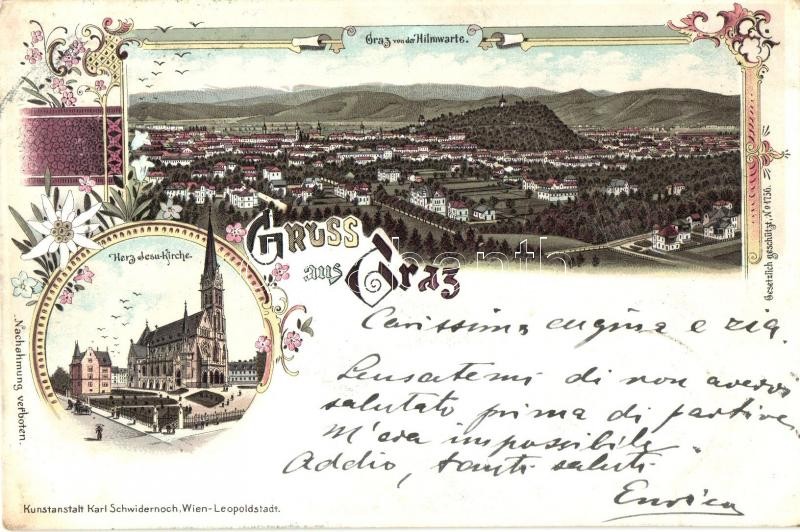 Graz von der Hilmwarte.
Herz Jesu-Kirche.
Gruss
aus Graz
Gesetzlich geschützt, No 4756.
Nachahmung verboten.
Carissima cugina e zia.
Scusatemi di non avervi
salutato prima di partire
M'era impossibile
Addio, tanti saluti
Enrica
Kunstanstalt Karl Schwidernoch, Wien-Leopoldstadt.